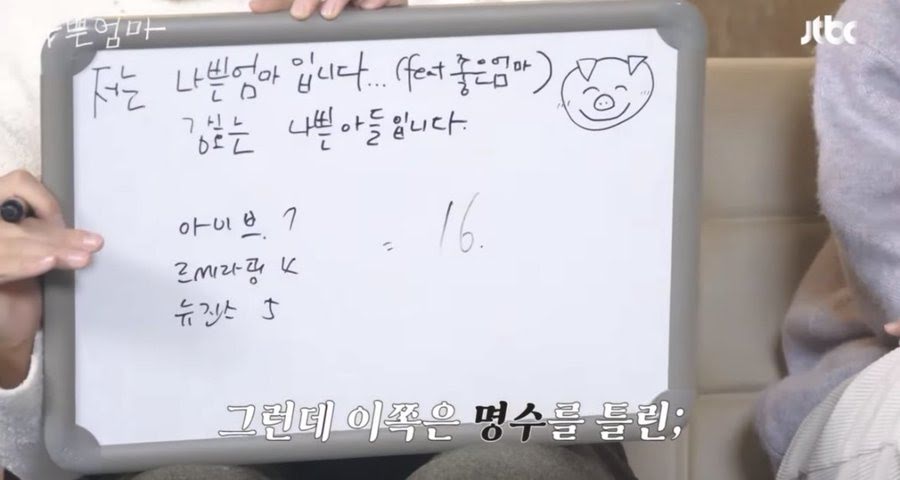 나쁜엄마
jtbc
저는 나쁜엄마입니다...(feat 좋은엄마)
강호는 나쁜아들입니다.
아이브. 7
르세라핌 K
뉴진스 5
= 16.
그런데 이쪽은 명수를 틀린;